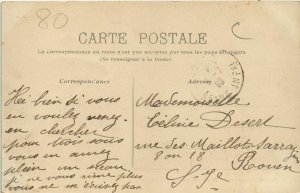 80
CARTE POSTALE
La correspondance au recto n'est pas acceptée par tous les pays étrangers
(Se renseigner à la Poste)
Correspondance
Adresse
Hé bien si vous
en voulez venez
en chercher
pour trois sous
vous en aurez
plein un seau
si ne vous aime plus
vous ne
Mademoiselle
Céline Desert
rue des Maillots Sarrazin
8 ou 18
Rouen
S-Jre